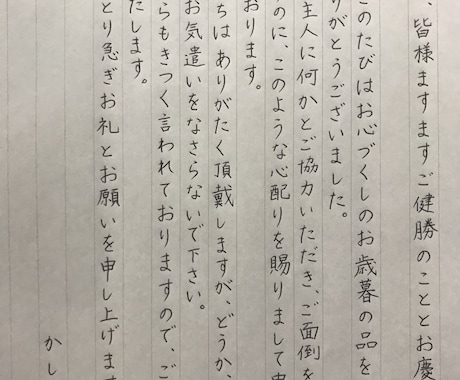 、皆様ますますご健勝のこととお慶
このたびはお心づくしのお歳暮の品を
りがとうございました。
主人に何かとご協力いただき、ご面倒を
のに、このような心配りを賜りまして
おります。
ちは ありがたく頂戴しますが、どうか、
お気遣いをなさらないで下さい。
らもきつく言われておりますので、ご
たします。
とり急ぎお礼とお願いを申し上げます
かし